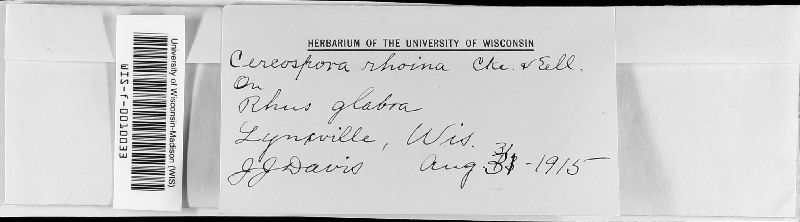 University of Wisconsin-Madison (WIS)
WIS-f-0010033
HERBARIUM OF THE UNIVERSITY OF WISCONSIN
Cercospora rhoina Cke. & Ell.
On
Rhus glabra
Lynxville, Wis.
JJDavis Aug. 31-1915